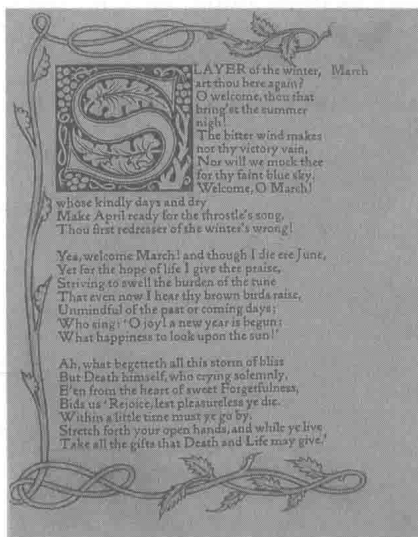 SLAYER of the winter, March
art thou here again?
O welcome, thou that
bring'st the summer
nigh!
The bitter wind makes
not thy victory vain,
Nor will we mock thee
for thy faint blue sky.
Welcome, O March!
whose kindly days and dry
Make April ready for the throstle's song,
Thou first redresser of the winter's wrong!
Yea, welcome March! and though I die ere June,
Yet for the hope of life I give thee praise,
Striving to swell the burden of the tune
That even now I hear thy brown birds raise,
Unmindful of the past or coming days;
Who sing: 'O joy! a new year is begun:
What happiness to look upon the sun!'
Ah, what begetteth all this storm of bliss
But Death himself, who crying solemnly,
E'en from the heart of sweet Forgetfulness,
Bids us 'Rejoice, lest pleasureless ye die.
Within a little time must ye go by.
Stretch forth your open hands, and while ye live
Take all the gifts that Death and Life may give.'